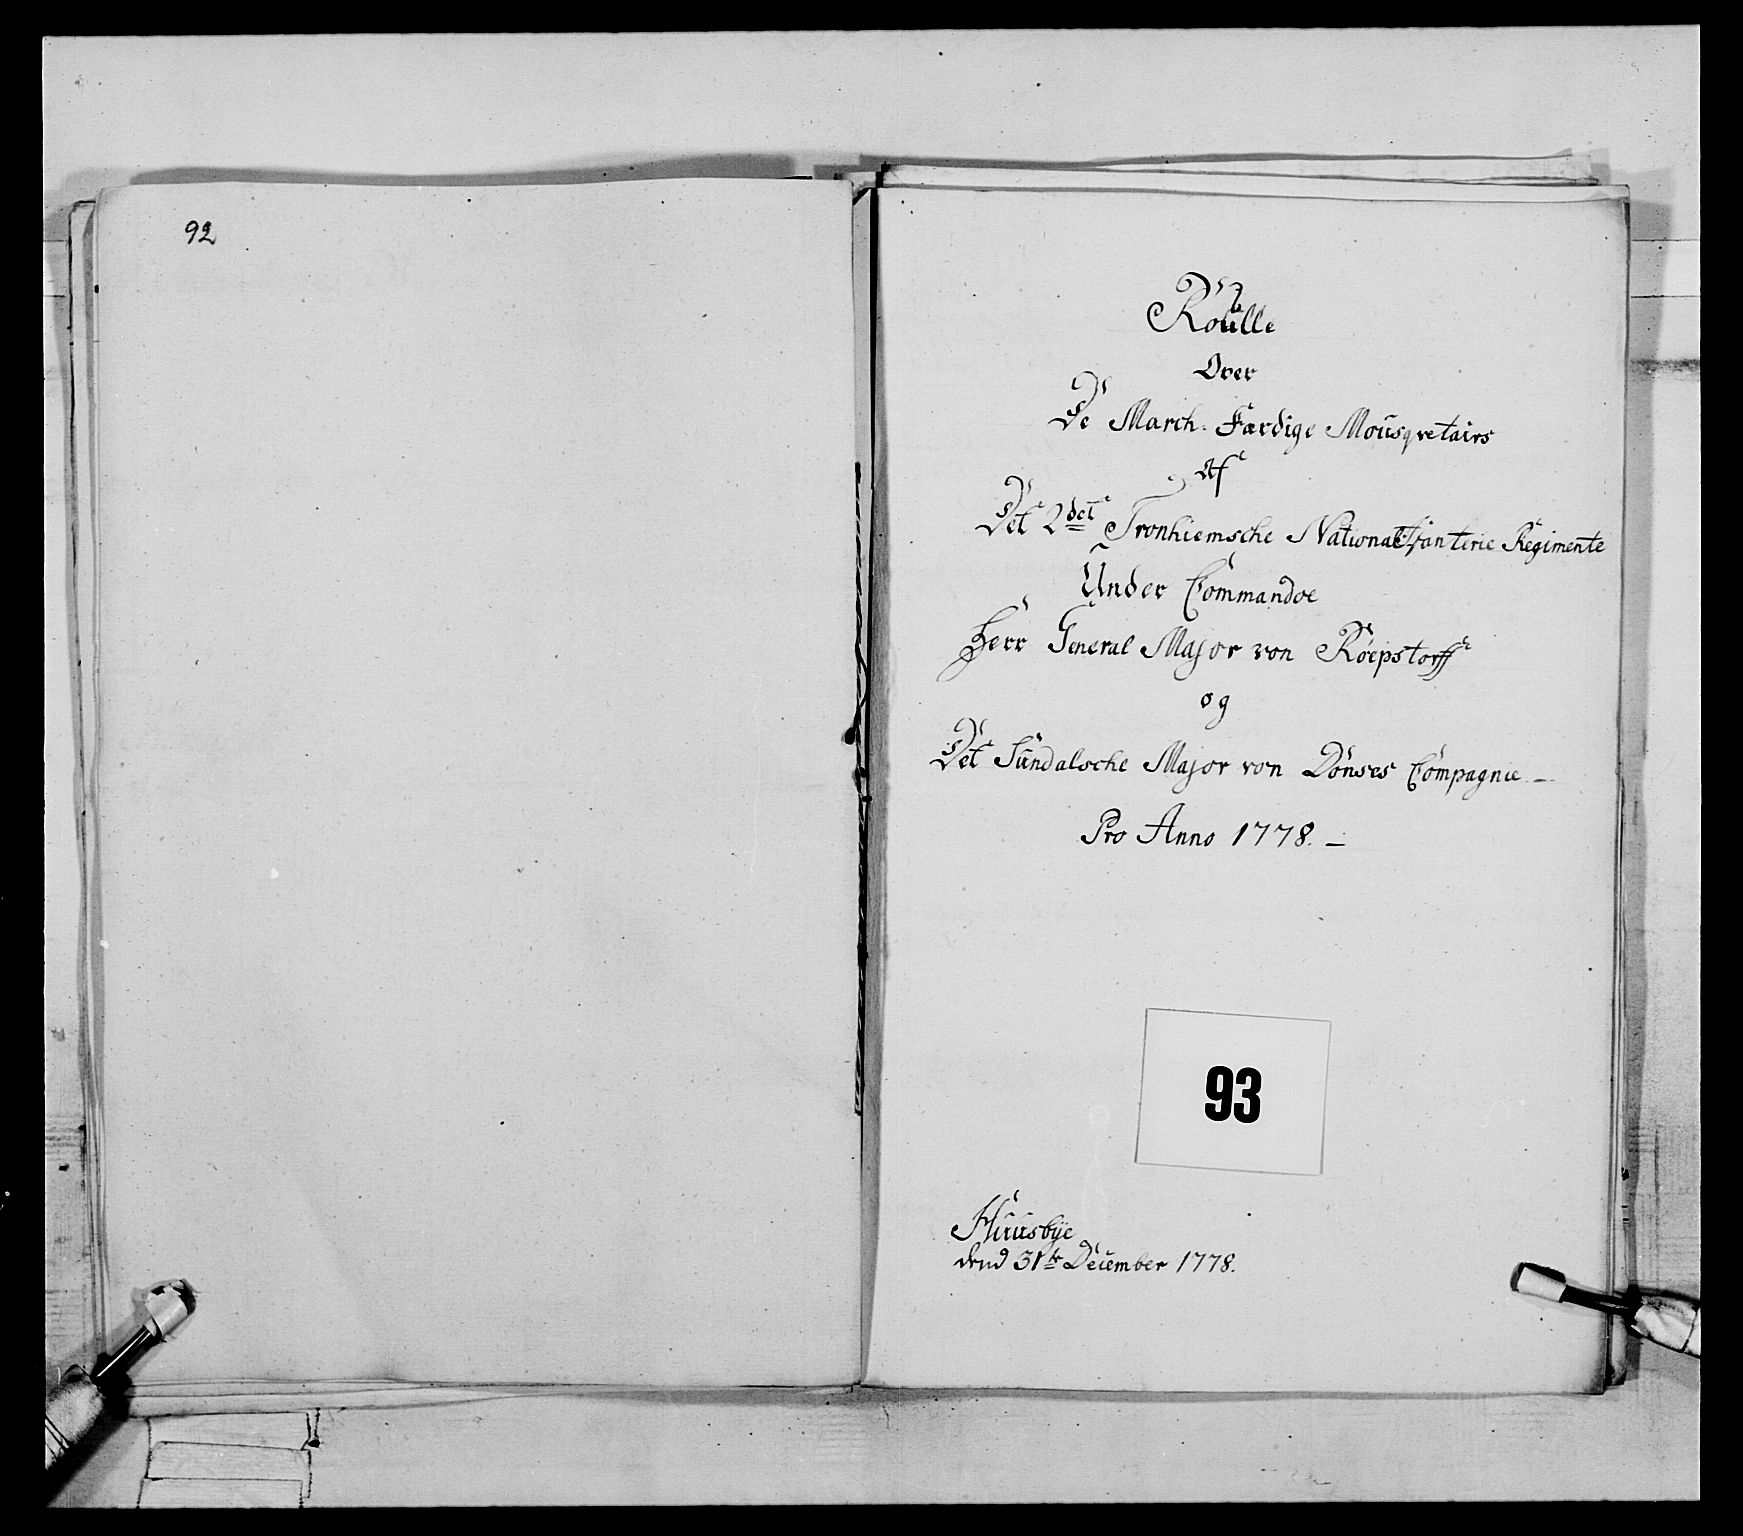 92
Roulle
Over
De March-Færdige Mousqvetairs
Af
Det 2det Tronhiemsche National Infanterie Regimente
Under Commandoe
Herr General Major von Røepstorff
og
Det Sundalsche Major von Dønses Compagnie. —
Pro Anno 1778. —
93
Huusbye
dend 31te December 1778.